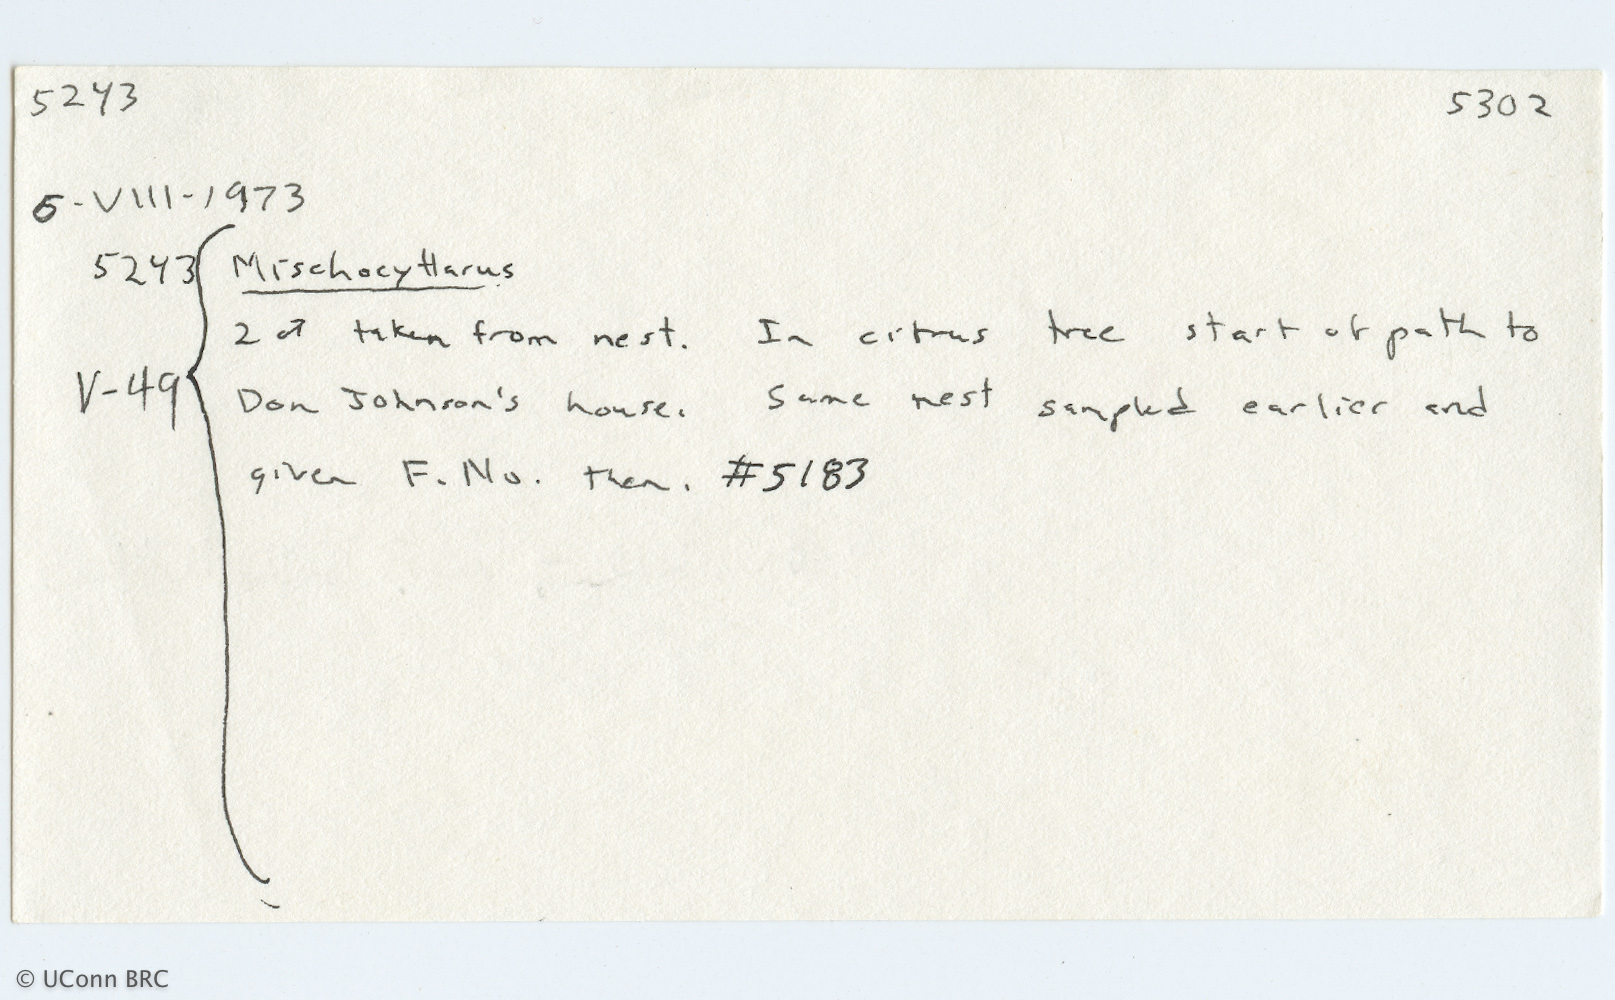 5243 5302
6-VIII-1973
5243 Mischocyttarus
2 ♂ taken from nest. In citrus tree start of path to
V-49
Don Johnson's house. Same nest sampled earlier and
given F. No. then. #5183
© UConn BRC